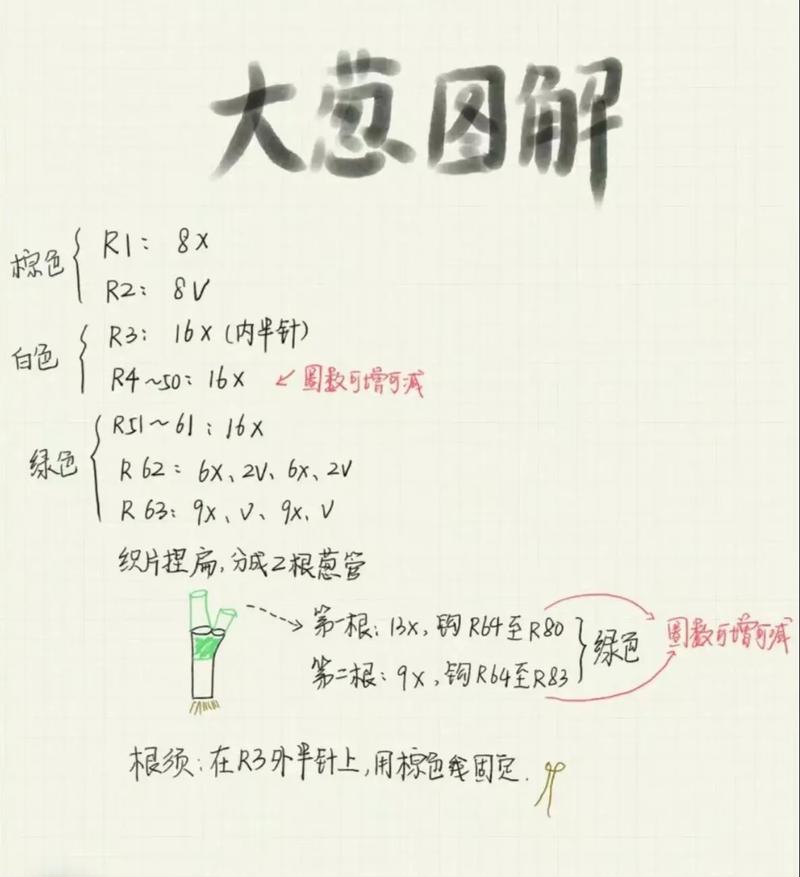 大葱图解
棕色
R1: 8X
R2: 8V
白色
R3: 16X (内半针)
R4~50: 16X ↙ 圈数可增可减
绿色
R51~61: 16X
R62: 6X、2V、6X、2V
R63: 9X、V、9X、V
织片捏扁,分成2根葱管
第一根: 13X, 钩R64至R80
第二根: 9X, 钩R64至R83
绿色
圈数可增可减
根须: 在R3外半针上,用棕色线固定.